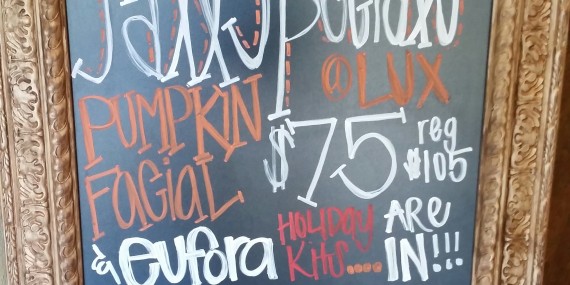 Fall Specials
@ LUX
PUMPKIN
FaciaL
$75 reg $105
& eufora HOLiday Kits.... ARE IN!!!